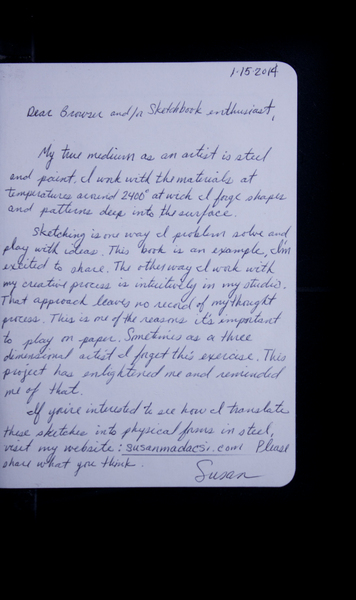 1-15-2014
Dear Browser and/or Sketchbook enthusiast,
My true medium as an artist is steel
and paint. I work with the materials at
temperatures around 2400° at wich I forge shapes
and patterns deep into the surface.
Sketching is one way I problem solve and
play with ideas. This book is an example, I'm
excited to share. The other way I work with
my creative process is intuitively in my studio.
That approach leaves no record of my thought
process. This is one of the reasons it's important
to play on paper. Sometimes as a three
dimensional artist I forget this exercise. This
project has enlightened me and reminded
me of that.
If you're interested to see how I translate
these sketches into physical forms in steel,
visit my website: susanmadacsi.com Please
share what you think.
Susan